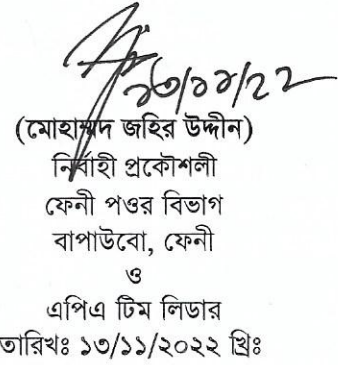 ১৩/১১/২২
(মোহাম্মদ জহির উদ্দীন)
নির্বাহী প্রকৌশলী
ফেনী পওর বিভাগ
বাপাউবো, ফেনী
ও
এপিএ টিম লিডার
তারিখঃ ১৩/১১/২০২২ খ্রিঃ